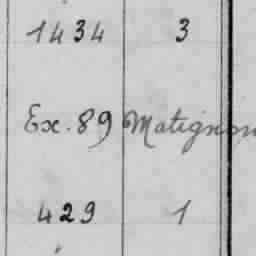 1434 3
Ex. 89 Matignon
429 1